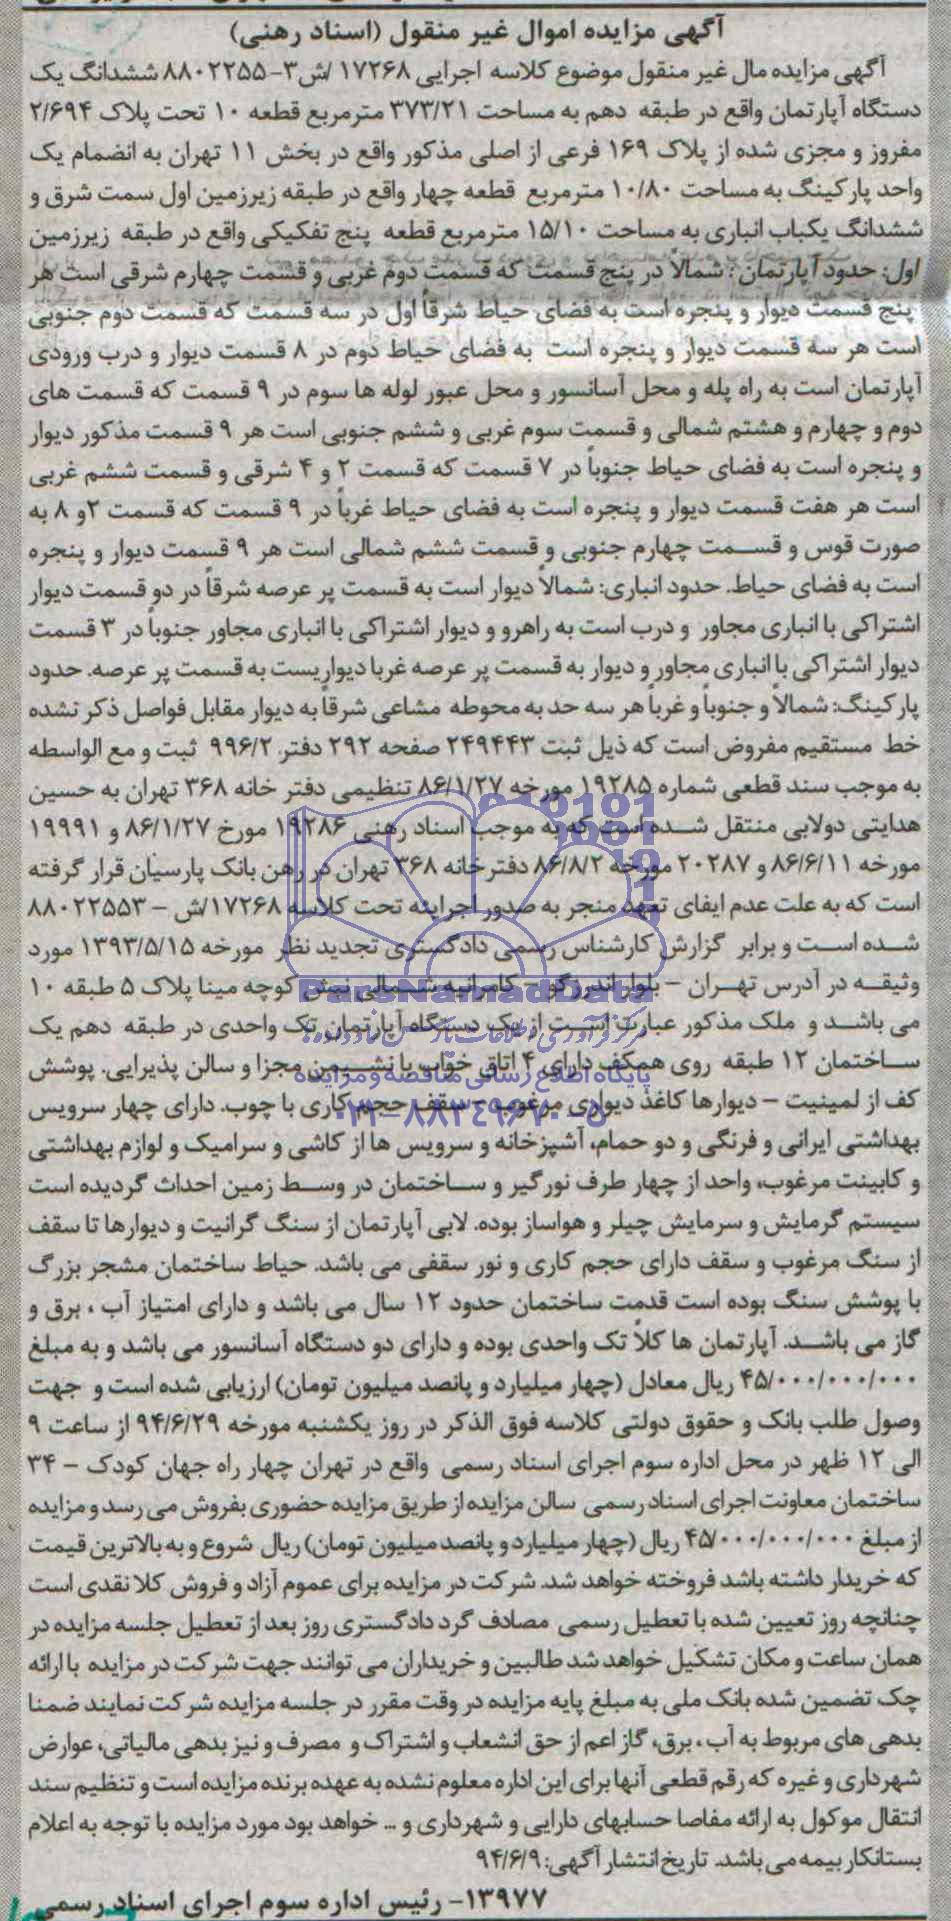 آگهی مزایده اموال غیر منقول (اسناد رهنی)
آگهی مزایده مال غیر منقول موضوع کلاسه اجرایی ۱۷۲۶۸ /ش۳-۸۸۰۲۲۵۵ ششدانگ یک
دستگاه آپارتمان واقع در طبقه دهم به مساحت ۳۷۳/۲۱ مترمربع قطعه ۱۰ تحت پلاک ۲/۶۹۴
مفروز و مجزی شده از پلاک ۱۶۹ فرعی از اصلی مذکور واقع در بخش ۱۱ تهران به انضمام یک
واحد پارکینگ به مساحت ۱۰/۸۰ مترمربع قطعه چهار واقع در طبقه زیرزمین اول سمت شرق و
ششدانگ یکباب انباری به مساحت ۱۵/۱۰ مترمربع قطعه پنج تفکیکی واقع در طبقه زیرزمین
اول: حدود آپارتمان : شمالاً در پنج قسمت که قسمت دوم غربی و قسمت چهارم شرقی است هر
پنج قسمت دیوار و پنجره است به فضای حیاط شرقاً اول در سه قسمت که قسمت دوم جنوبی
است هر سه قسمت دیوار و پنجره است به فضای حیاط دوم در ۸ قسمت دیوار و درب ورودی
آپارتمان است به راه پله و محل آسانسور و محل عبور لوله ها سوم در ۹ قسمت که قسمت های
دوم و چهارم و هشتم شمالی و قسمت سوم غربی و ششم جنوبی است هر ۹ قسمت مذکور دیوار
و پنجره است به فضای حیاط جنوباً در ۷ قسمت که قسمت ۲ و ۴ شرقی و قسمت ششم غربی
است هر هفت قسمت دیوار و پنجره است به فضای حیاط غرباً در ۹ قسمت که قسمت ۲و ۸ به
صورت قوس و قسمت چهارم جنوبی و قسمت ششم شمالی است هر ۹ قسمت دیوار و پنجره
است به فضای حیاط. حدود انباری: شمالاً دیوار است به قسمت پر عرصه شرقاً در دو قسمت دیوار
اشتراکی با انباری مجاور و درب است به راهرو و دیوار اشتراکی با انباری مجاور جنوباً در ۳ قسمت
دیوار اشتراکی با انباری مجاور و دیوار به قسمت پر عرصه غربا دیواریست به قسمت پر عرصه. حدود
پارکینگ: شمالاً و جنوباً و غرباً هر سه حد به محوطه مشاعی شرقاً به دیوار مقابل فواصل ذکر نشده
خط مستقیم مفروض است که ذیل ثبت ۲۴۹۴۴۳ صفحه ۲۹۲ دفتر ۹۹۶/۲ ثبت و مع الواسطه
به موجب سند قطعی شماره ۱۹۲۸۵ مورخه ۸۶/۱/۲۷ تنظیمی دفتر خانه ۳۶۸ تهران به حسین
هدایتی دولابی منتقل شده است که به موجب اسناد رهنی ۱۹۲۸۶ مورخ ۸۶/۱/۲۷ و ۱۹۹۹۱
مورخه ۸۶/۶/۱۱ و ۲۰۲۸۷ مورخه ۸۶/۸/۲ دفترخانه ۳۶۸ تهران در رهن بانک پارسیان قرار گرفته
است که به علت عدم ایفای تعهد منجر به صدور اجراییه تحت کلاسه ۱۷۲۶۸/ش – ۸۸۰۲۲۵۵۳
شده است و برابر گزارش کارشناس رسمی دادگستری تجدید نظر مورخه ۱۳۹۳/۵/۱۵ مورد
وثیقه در آدرس تهران – بلوار اندرزگو – کامرانیه شمالی نبش کوچه مینا پلاک ۵ طبقه ۱۰
می باشد و ملک مذکور عبارت است از یک دستگاه آپارتمان تک واحدی در طبقه دهم یک
ساختمان ۱۲ طبقه روی همکف دارای ۴ اتاق خواب با نشیمن مجزا و سالن پذیرایی. پوشش
کف از لمینیت – دیوارها کاغذ دیواری مرغوب – سقف حجم کاری با چوب. دارای چهار سرویس
بهداشتی ایرانی و فرنگی و دو حمام، آشپزخانه و سرویس ها از کاشی و سرامیک و لوازم بهداشتی
و کابینت مرغوب، واحد از چهار طرف نورگیر و ساختمان در وسط زمین احداث گردیده است
سیستم گرمایش و سرمایش چیلر و هواساز بوده. لابی آپارتمان از سنگ گرانیت و دیوارها تا سقف
از سنگ مرغوب و سقف دارای حجم کاری و نور سقفی می باشد. حیاط ساختمان مشجر بزرگ
با پوشش سنگ بوده است قدمت ساختمان حدود ۱۲ سال می باشد و دارای امتیاز آب ، برق و
گاز می باشد. آپارتمان ها کلاً تک واحدی بوده و دارای دو دستگاه آسانسور می باشد و به مبلغ
۴۵/۰۰۰/۰۰۰/۰۰۰ ریال معادل (چهار میلیارد و پانصد میلیون تومان) ارزیابی شده است و جهت
وصول طلب بانک و حقوق دولتی کلاسه فوق الذکر در روز یکشنبه مورخه ۹۴/۶/۲۹ از ساعت ۹
الی ۱۲ ظهر در محل اداره سوم اجرای اسناد رسمی واقع در تهران چهار راه جهان کودک – ۳۴
ساختمان معاونت اجرای اسناد رسمی سالن مزایده از طریق مزایده حضوری بفروش می رسد و مزایده
از مبلغ ۴۵/۰۰۰/۰۰۰/۰۰۰ ریال (چهار میلیارد و پانصد میلیون تومان) ریال شروع و به بالاترین قیمت
که خریدار داشته باشد فروخته خواهد شد. شرکت در مزایده برای عموم آزاد و فروش کلا نقدی است
چنانچه روز تعیین شده با تعطیل رسمی مصادف گرد دادگستری روز بعد از تعطیل جلسه مزایده در
همان ساعت و مکان تشکیل خواهد شد طالبین و خریداران می توانند جهت شرکت در مزایده با ارائه
چک تضمین شده بانک ملی به مبلغ پایه مزایده در وقت مقرر در جلسه مزایده شرکت نمایند ضمنا
بدهی های مربوط به آب ، برق، گاز اعم از حق انشعاب و اشتراک و مصرف و نیز بدهی مالیاتی، عوارض
شهرداری و غیره که رقم قطعی آنها برای این اداره معلوم نشده به عهده برنده مزایده است و تنظیم سند
انتقال موکول به ارائه مفاصا حسابهای دارایی و شهرداری و ... خواهد بود مورد مزایده با توجه به اعلام
بستانکار بیمه می باشد. تاریخ انتشار آگهی: ۹۴/۶/۹
۱۳۹۷۷– رئیس اداره سوم اجرای اسناد رسمی
ParsNamadData
پایگاه اطلاع رسانی مناقصه و مزایده
۰۲۱–۸۸۳٤۹۶۷۰–۵